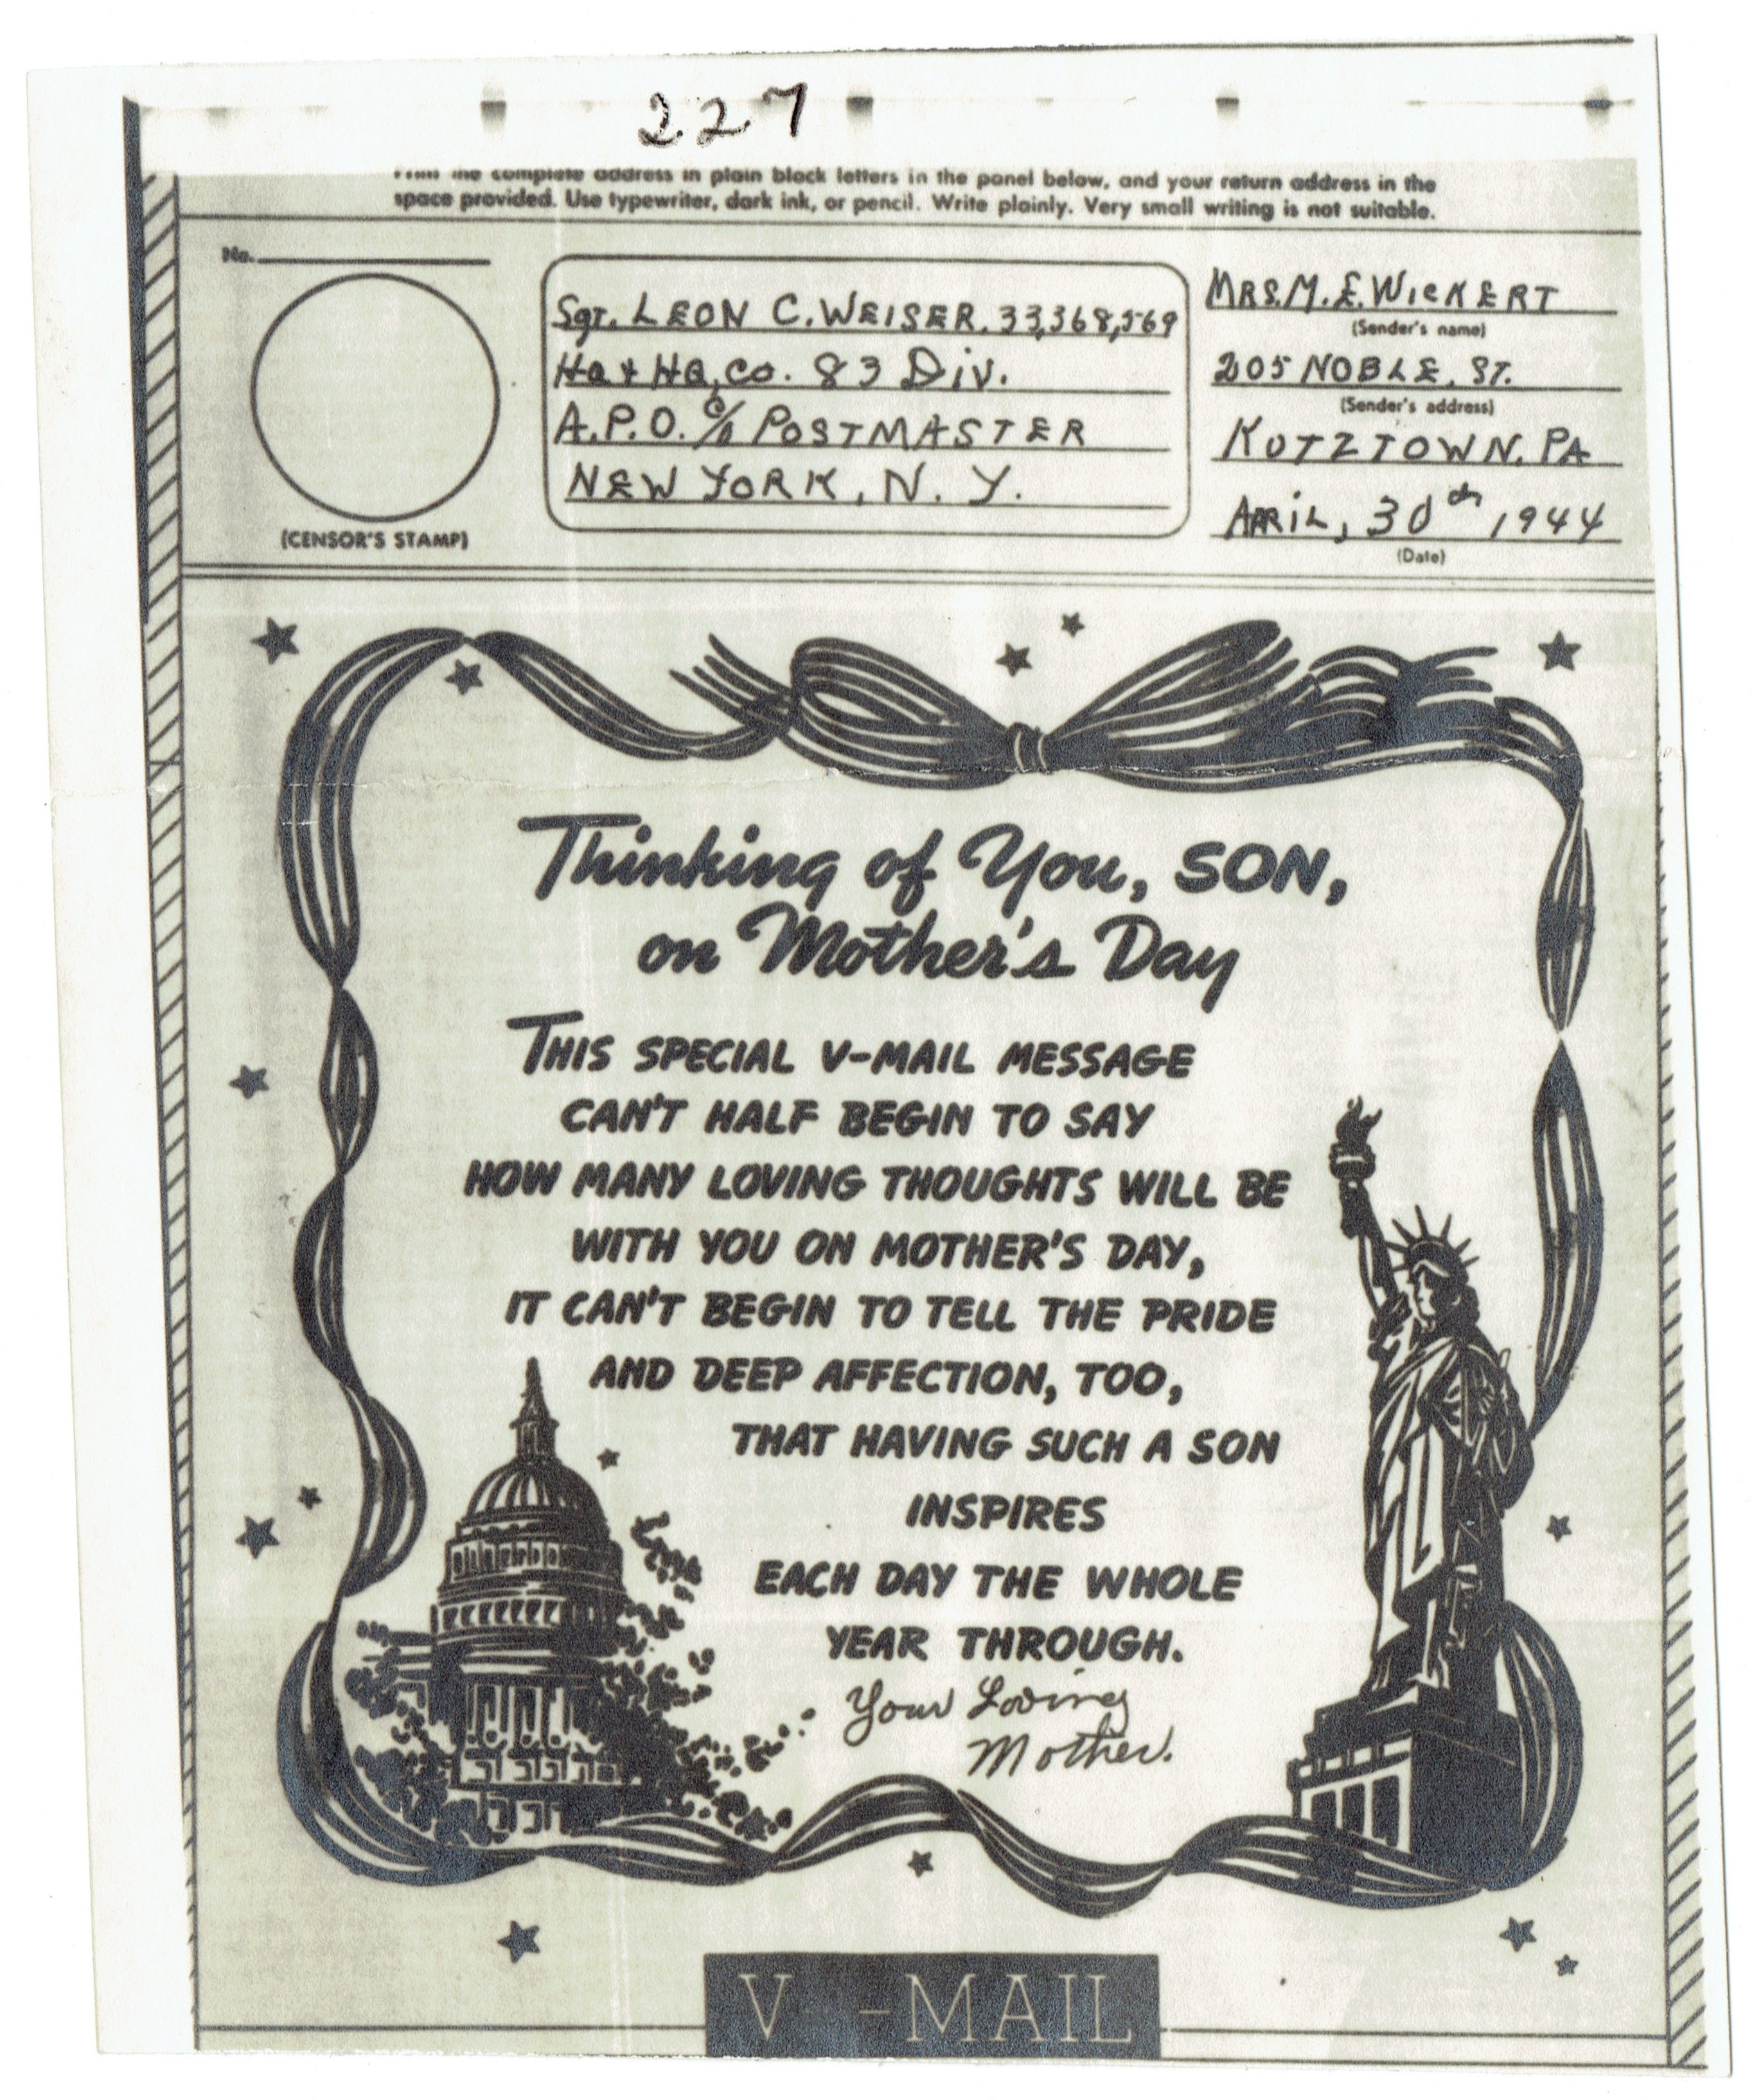 227
Print the complete address in plain block letters in the panel below, and your return address in the
space provided. Use typewriter, dark ink, or pencil. Write plainly. Very small writing is not suitable.
No.
(CENSOR'S STAMP)
Sgt. LEON C. WEISER. 33,368,569
Hq & Hq, Co. 83 Div.
A.P.O. c/o POSTMASTER
NEW YORK, N. Y.
MRS. M. E. WICKERT
(Sender's name)
205 NOBLE. ST.
(Sender's address)
KUTZTOWN. PA
APRIL, 30th, 1944
(Date)
Thinking of You, SON,
on Mother's Day
THIS SPECIAL V-MAIL MESSAGE
CAN'T HALF BEGIN TO SAY
HOW MANY LOVING THOUGHTS WILL BE
WITH YOU ON MOTHER'S DAY,
IT CAN'T BEGIN TO TELL THE PRIDE
AND DEEP AFFECTION, TOO,
THAT HAVING SUCH A SON
INSPIRES
EACH DAY THE WHOLE
YEAR THROUGH.
Your Loving
Mother.
V--MAIL